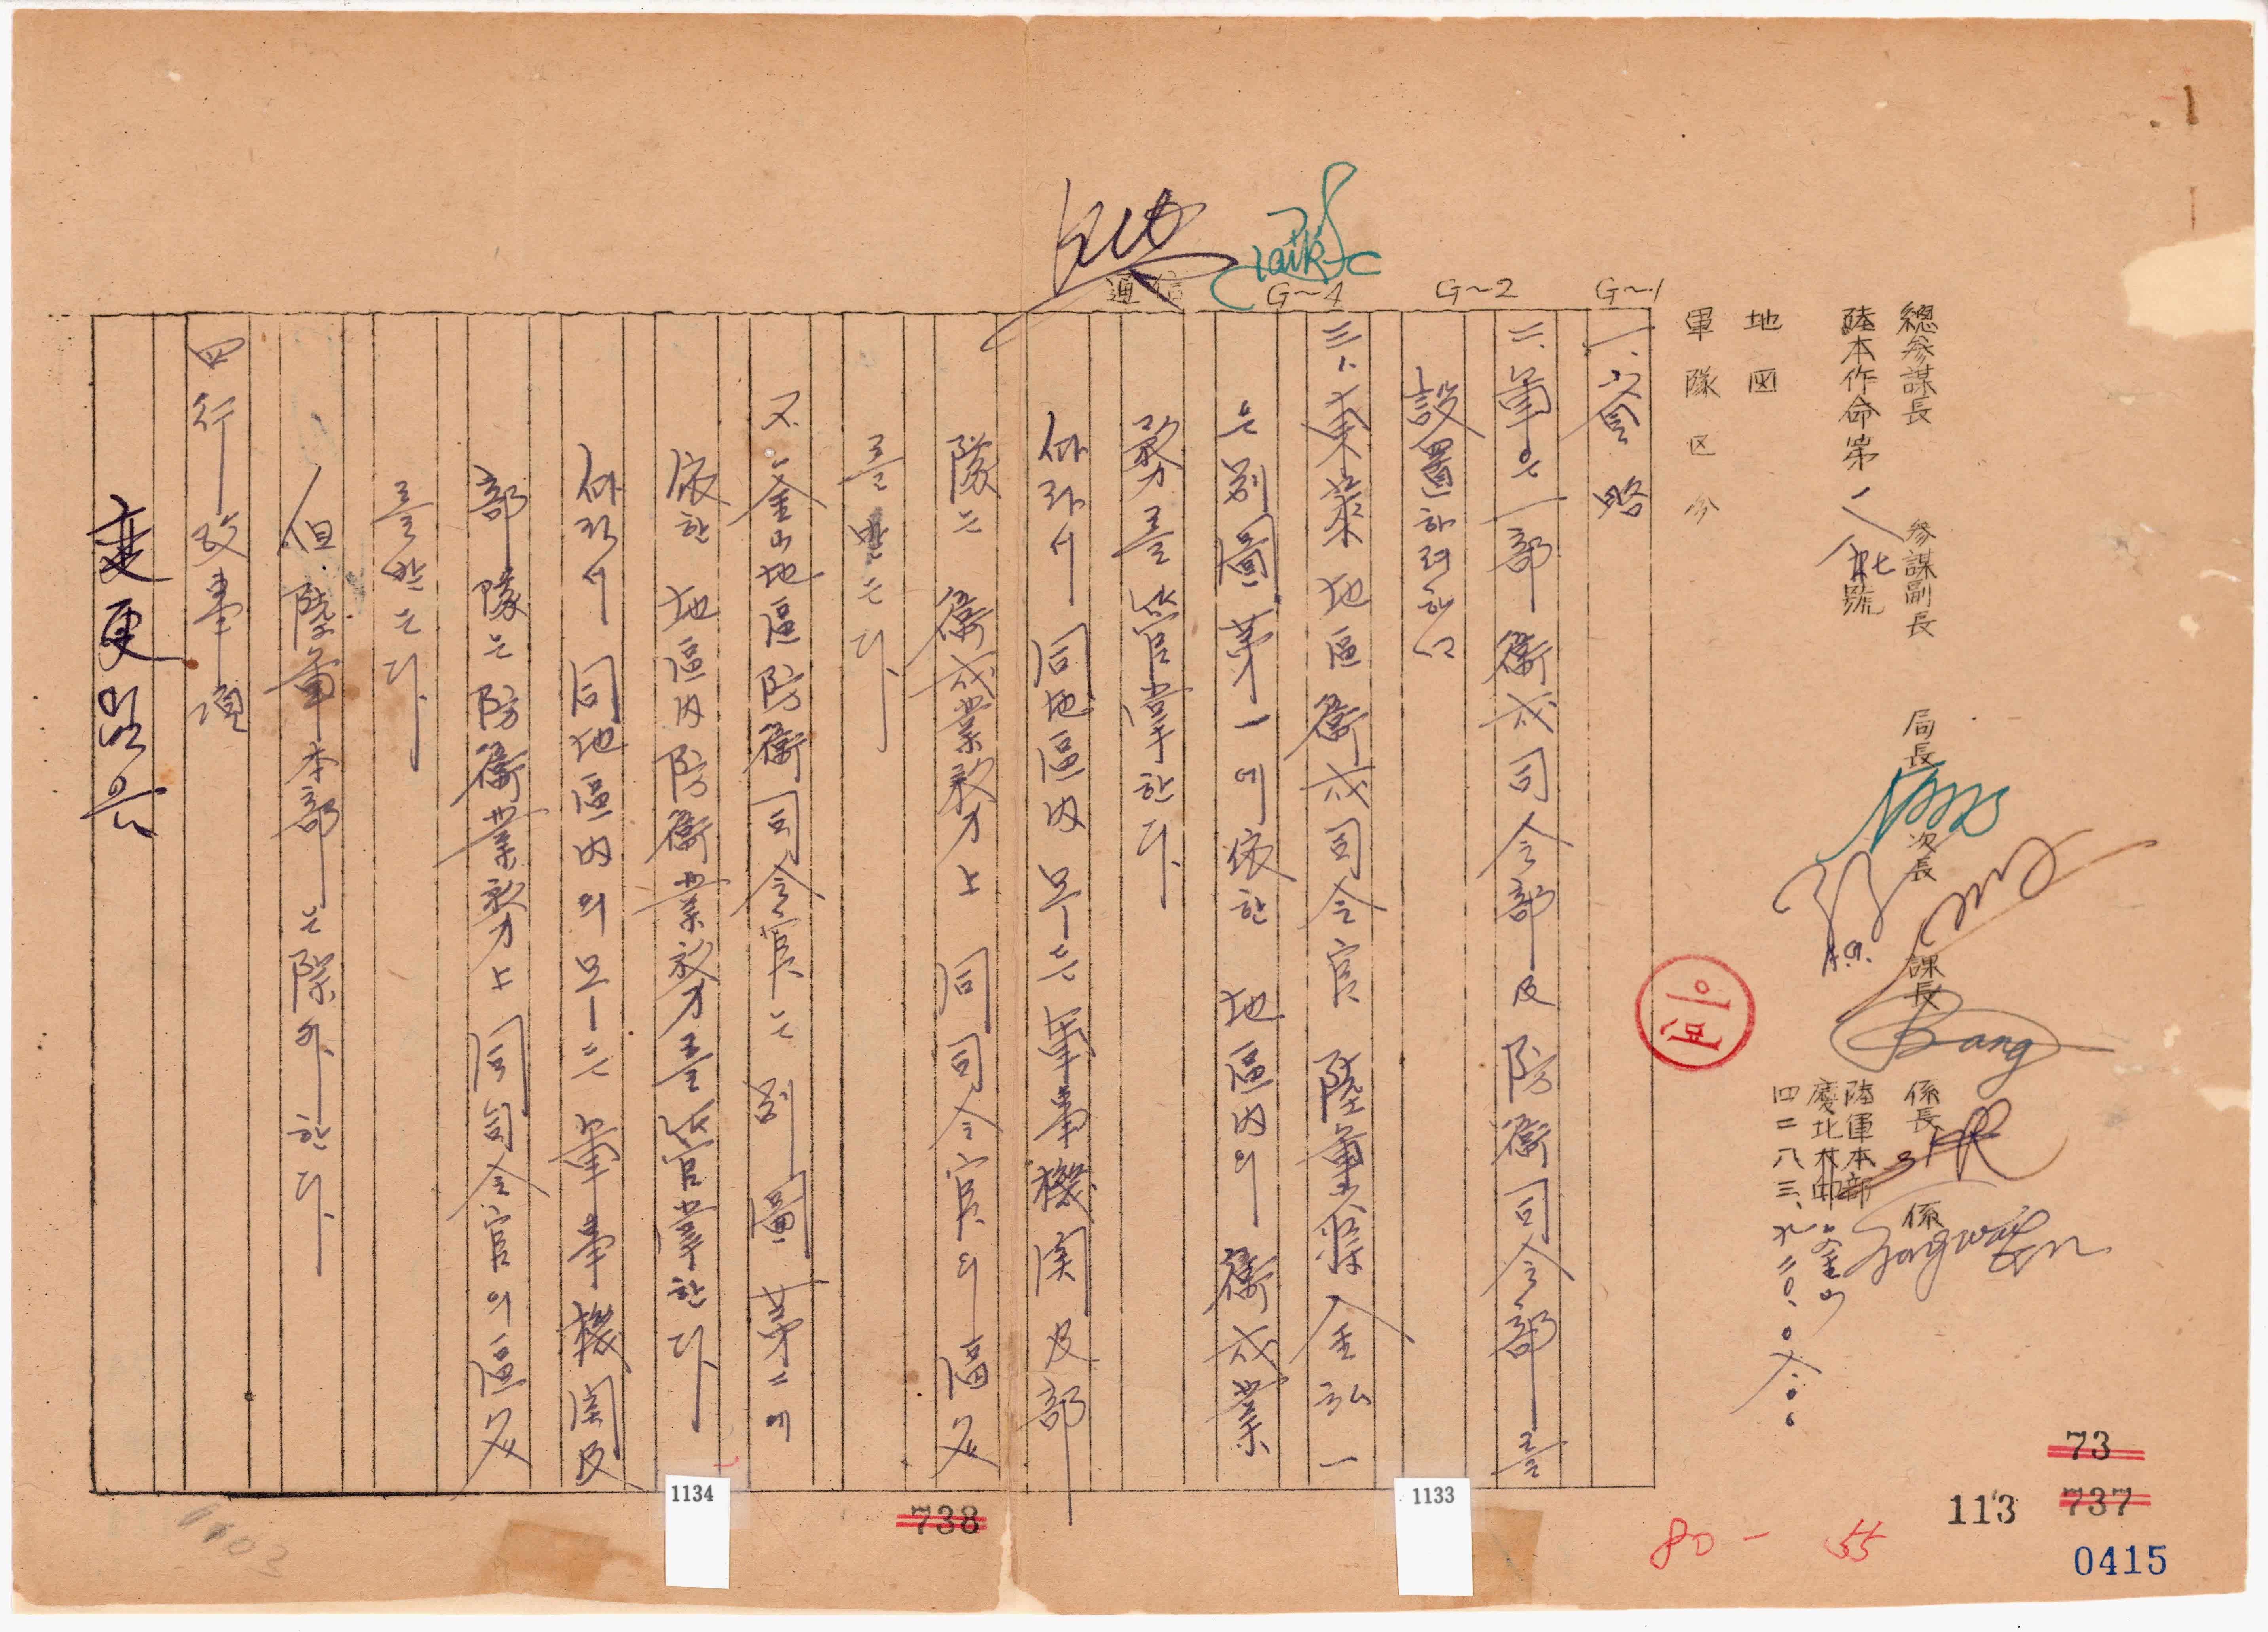 總參謀長 參謀副長 局長 次長 課長 係長 係
陸本作命第 號
陸軍本部
慶北大邱 釜山
四二八三、九、二〇、
地図
軍隊区分
Bang
이모
G~1
G~2
G~4
通信
Paik
一、省略
二、軍은 一部 衞戍司令部 及 防衞司令部를
設置하려 함
三、1、東萊地區 衞戍司令官 陸軍准將 金弘一
는 別圖 第一에 依한 地區內의 衞戍業
務를 管掌한다
따라서 同地區內 모든 軍事機関 及 部
隊는 衞戍業務上 同司令官의 區処
를 받는다
2. 釜山地區防衞司令官는 別圖 第二에
依한 地區內 防衞業務를 管掌한다
따라서 同地區內의 모든 軍事機関 及
部隊는 防衞業務上 同司令官의 區処
를 받는다
但 陸軍本部는 除外한다
四 行政事項
變更없음
1134
1133
738
73
737
113
80 - 55
0415
1103